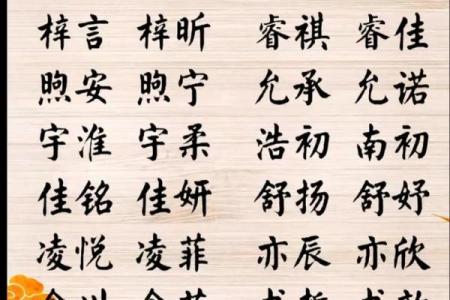 梓言 梓昕 睿祺 睿佳
煦安 煦宁 允承 允诺
宇淮 宇柔 浩初 南初
佳铭 佳妍 舒扬 舒妤
凌悦 凌菲 亦辰 亦欣